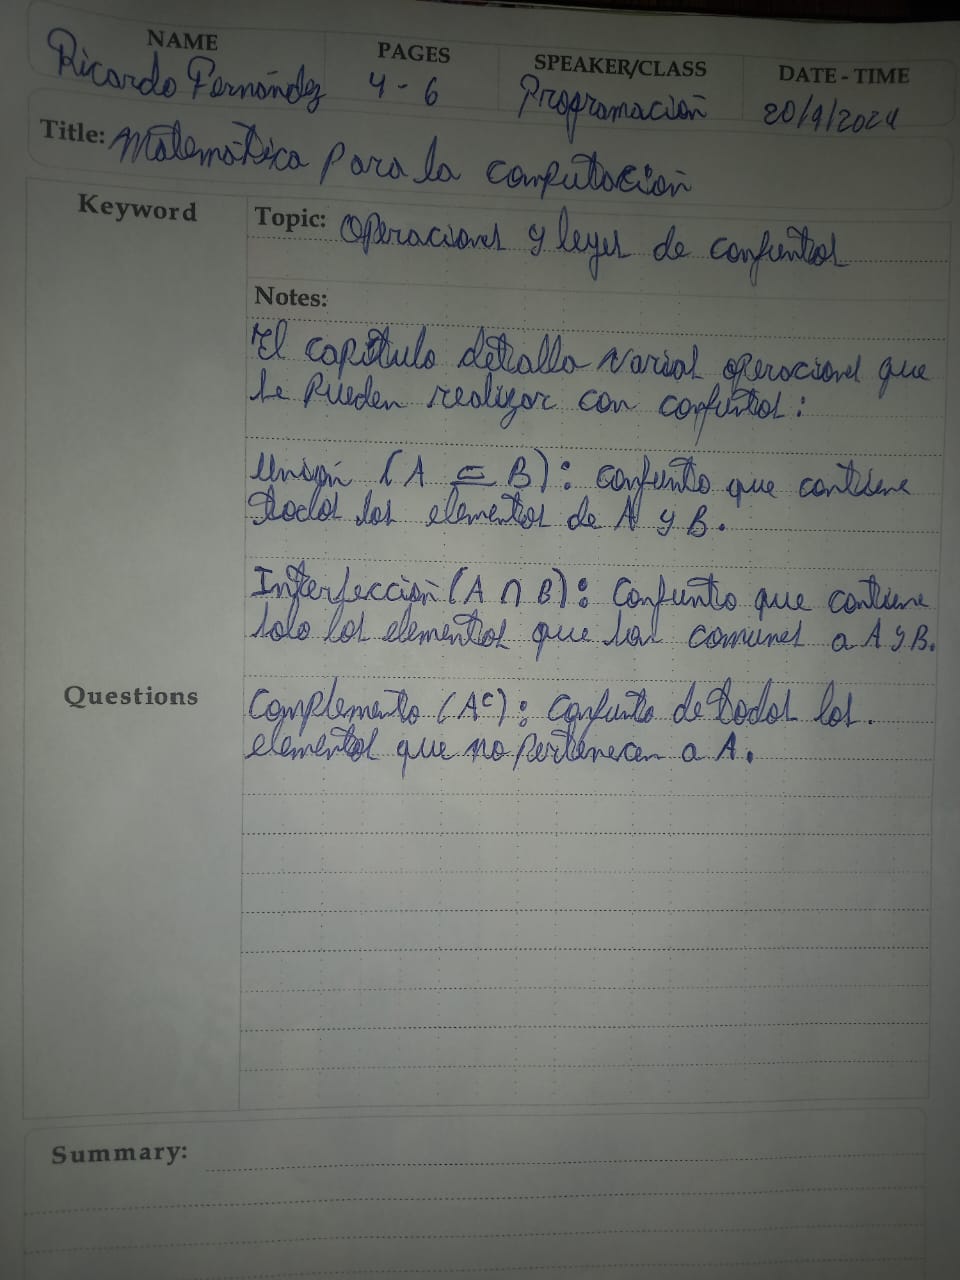 NAME PAGES SPEAKER/CLASS DATE - TIME
Ricardo Fernández 4 - 6 Programación 20/9/2024
Title: Matemática para la computación
Keyword
Topic: Operaciones y leyes de conjuntos
Notes:
El capítulo detalla varias operaciones que
se pueden realizar con conjuntos:
Unión (A ⊆ B): conjunto que contiene
todos los elementos de A y B.
Intersección (A ∩ B): Conjunto que contiene
solo los elementos que son comunes a A y B.
Questions
Complemento (Aᶜ): Conjunto de todos los.
elementos que no pertenecen a A.
Summary: